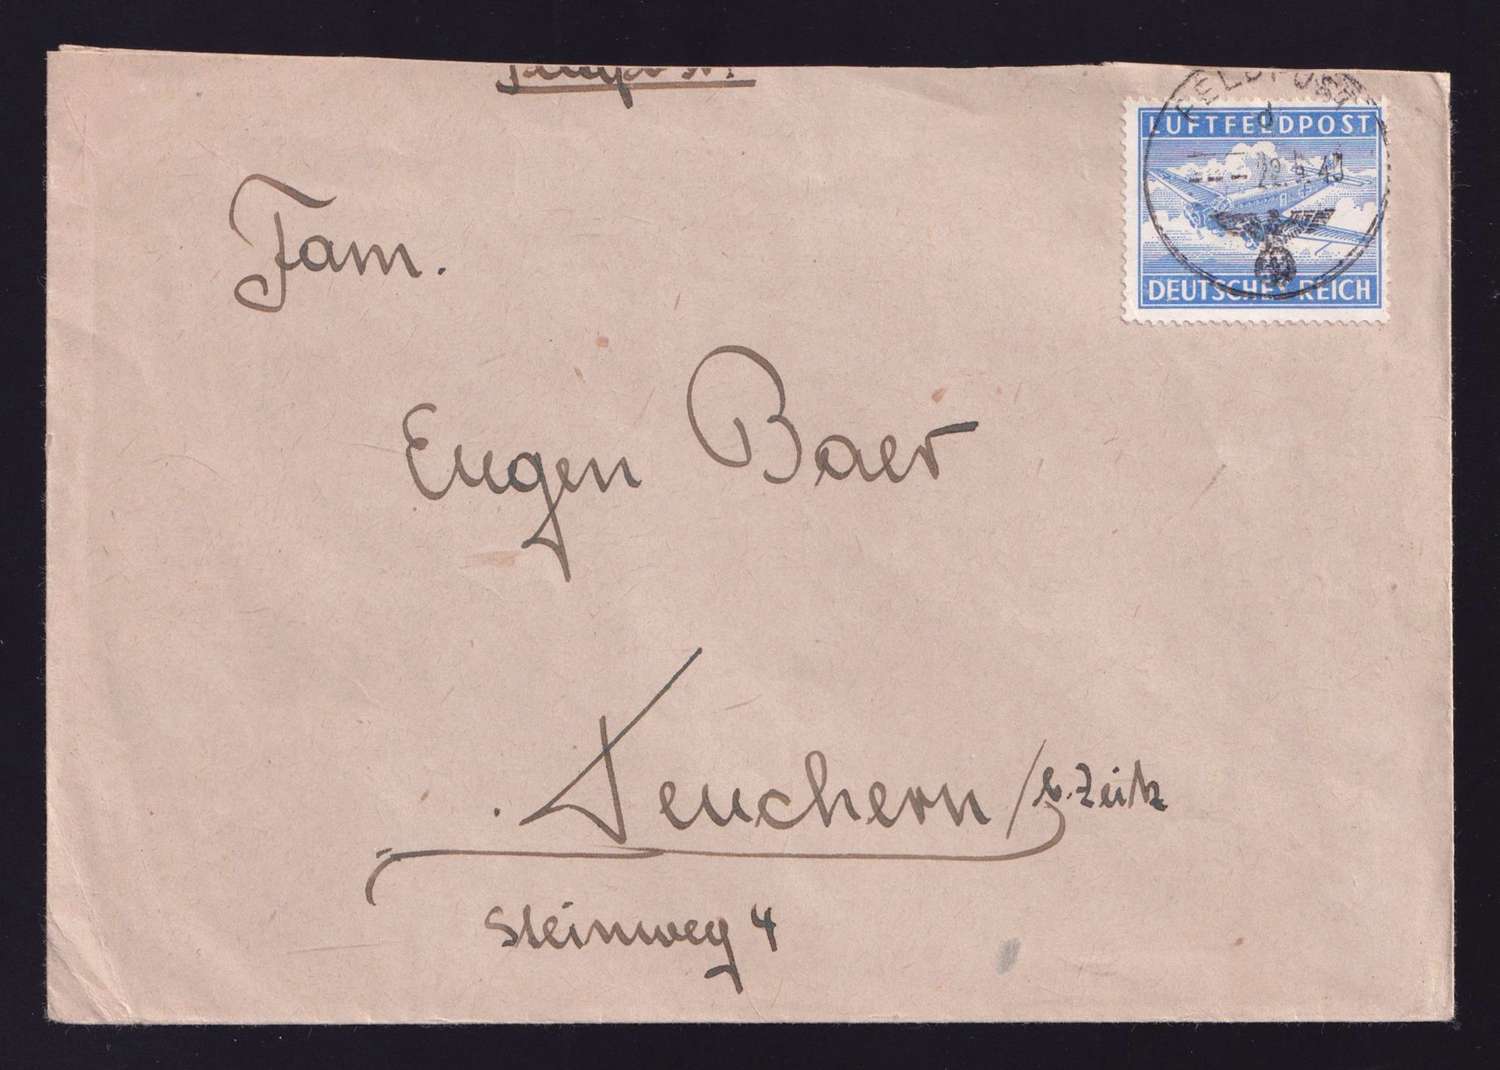 FELDPOST
d
LUFTFELDPOST
DEUTSCHES REICH
Fam.
Eugen Baer
Teuchern / b. Zeitz
Steinweg 4